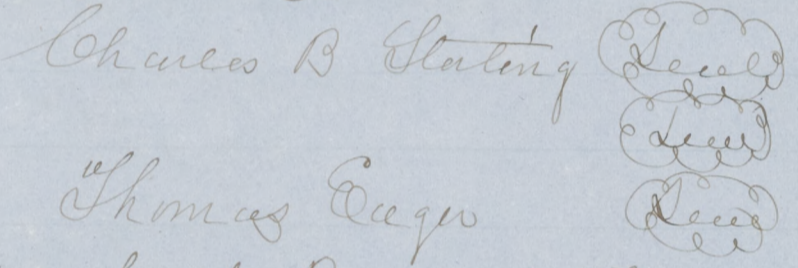 Charles B Stating Seal
Seal
Thomas Eager Seal